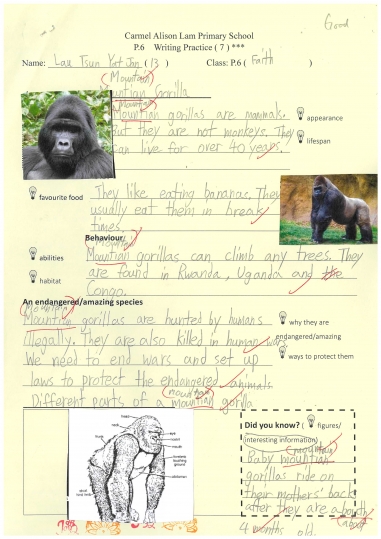 Good
Carmel Alison Lam Primary School
P.6 Writing Practice ( 7 ) ***
Name: Lau Tsun Yat Jan ( 13 ) Class: P.6 ( Faith )
(Mountain)
untian Gorilla
Mountain
Mountian gorillas are mammals.
But they are not monkeys. They
can live for over 40 years.
appearance
lifespan
favourite food
They like eating bananas. They
usually eat them in break
times.
Behaviour
Mountain
Mountian gorillas can climb any trees. They
are found in Rwanda, Uganda and the
Congo.
abilities
habitat
An endangered/amazing species
(Mountain)
Mountian gorillas are hunted by humans
illegally. They are also killed in human wars.
We need to end wars and set up
laws to protect the endangered animals.
mountain
Different parts of a mountian gorilla
why they are
endangered/amazing
ways to protect them
Did you know? ( figures/
interesting information)
mountain
Baby mountian
gorillas ride on
their mothers' back
after they are
about
4 months old.